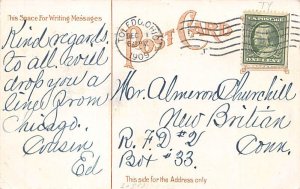 This Space For Writing Messages
POST CARD
TOLEDO, OHIO
DEC
1909
Kind regards
to all. Will
drop you a
line from
Chicago.
Cousin
Ed
Mr. Almeron Churchill
New Britian
R. F. D #2
Box #33.
Conn.
This side for the Address only